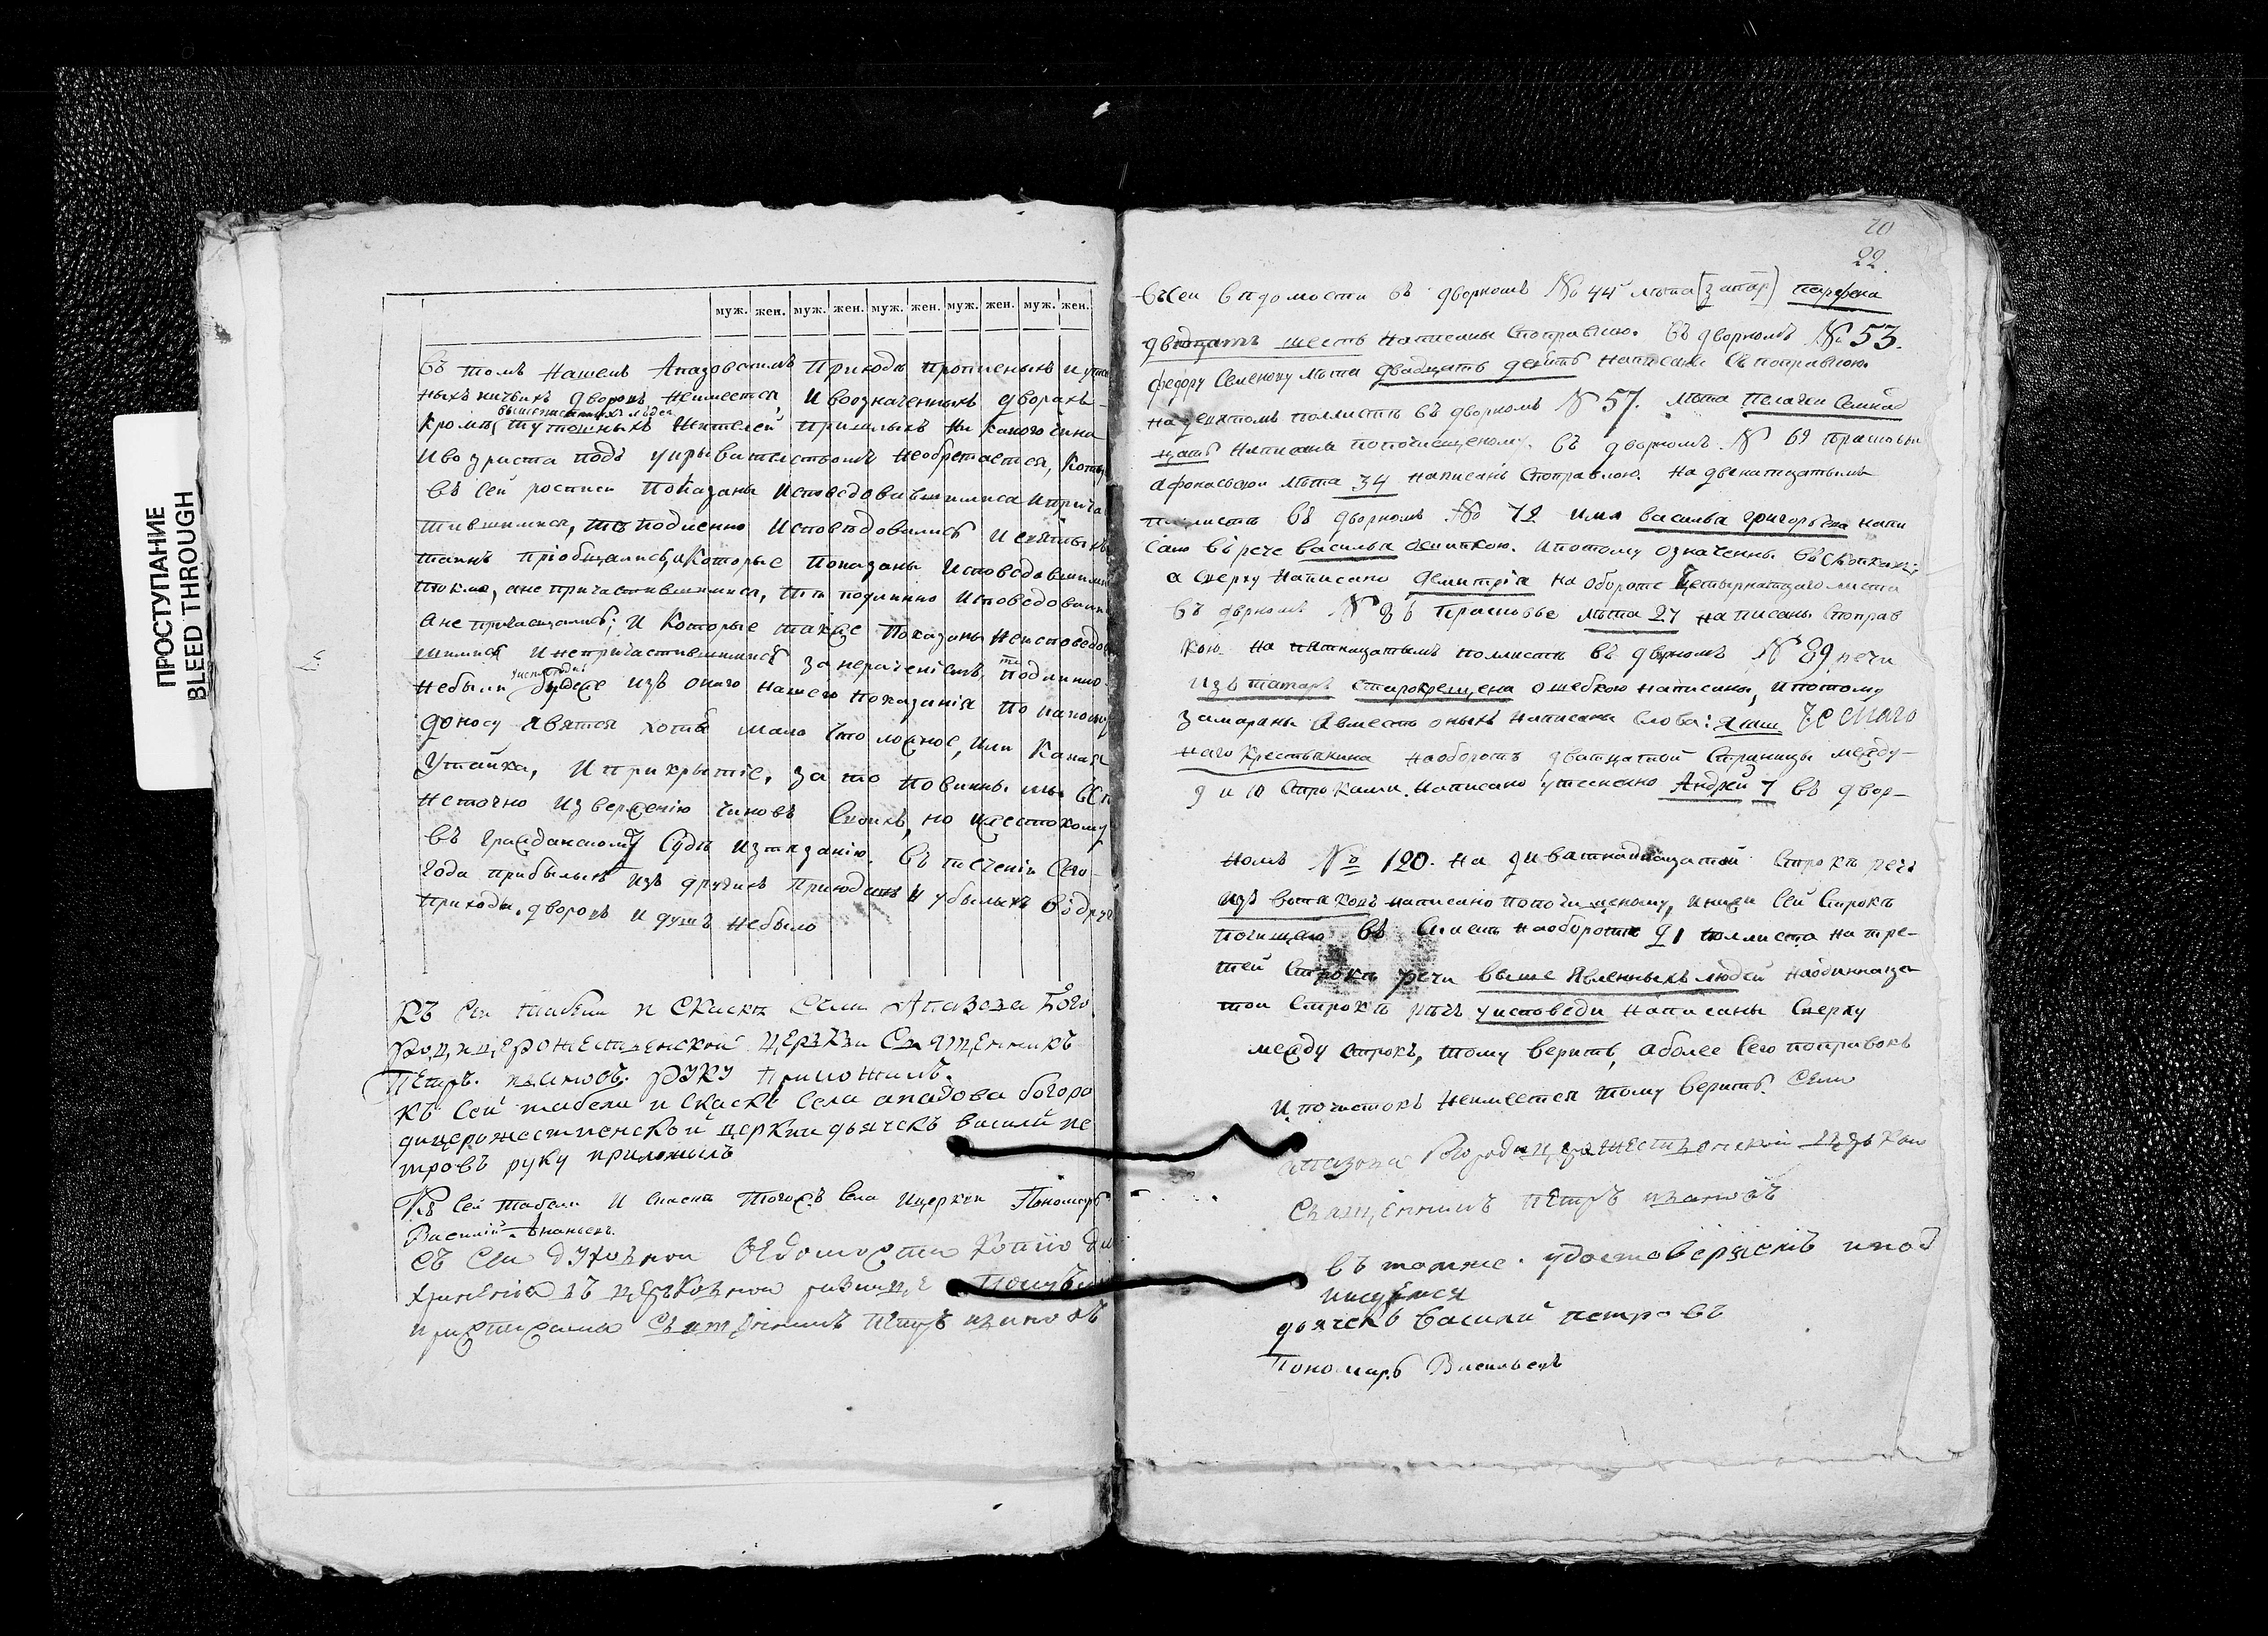 ПРОСТУПАНИЕ
BLEED THROUGH
муж. жен. муж. жен. муж. жен. муж. жен. муж. жен.
Въ томъ нашемъ Апазовскомъ приходѣ прописныхъ и утае
ныхъ ничьихъ дворовъ неимеется, и воозначенныхъ дворахъ
вышеписанныхъ людей
кромѣ тутошныхъ жителей пришлыхъ ни какого чина
и возраста подъ укрывательствомъ необретается, которы
въ сей росписи показаны исповедовавшимися и прича
тившимися, те подленно исповѣдовались и святыхъ
таинъ пріобщались, а которые показаны исповедовшими
токмо, а не причастившимися, тѣ подлинно исповедовали
а не причащались; и которые также показаны неисповедо
шимися и непричастившимися за нерачениемъ, те подлинно
у исповеди
небыли будеже изъ онаго нашего показанія по какому
доносу явится хотя мало что ложное, или какая
утайка, и прикрытіе, за то повинны мы
неточно изверженію чиновъ своихъ, но жестокому
въ гражданскому суде изтязанію. Въ теченіи сего
года прибылыхъ изъ другихъ приходовъ и убылыхъ в др
приходы, дворовъ и душъ небыло
Къ сеи табели и скаске села Апазова Бого
родицерожественской церкви священникъ
Петръ ивановъ руку приложилъ.
Къ сей табели и скаске села апазова богоро
дицерожественской церкви дьячекъ василй пе
тровъ руку приложилъ
Къ сей табели и скаске тогожъ села и церкви Пономарь
Василий Ананьевъ.
съ сеи духовнои ведомости копию для
хранения въ церковнои ризнице
и росписался священникъ петръ ивановъ
20
22.
Въ сеи ведомости въ дворномъ № 44 лѣта парфена
двадцать шесть написаны споправкою. въ дворномъ № 53.
федору Семенову лѣта двадцать девять написаны съ поправкою
на девятомъ поллисте въ дворномъ № 57. лѣта Пелагеи семнад
цать написаны поточищеному. въ дворномъ № 69 прасковьи
афонасьевой лѣта 34 написаны споправкою. на двенатцатымъ
поллисте въ дворномъ № 72 имя васильа григорьева напи
сано въ рече васильа ошипкою. и потому означены въ скопкахъ:
а сверху написано Демитрія на обороте четырнатцаго листа
въ дворномъ № 86 прасковье лѣта 27 написаны споправ
кою. на пятнацатымъ поллисте въ дворномъ № 89 речи
изъ татаръ старокрещена ошебкою написаны, и потому
замараны вместо оныхъ написаны слова: ясаш
наго крестьянина наоборотѣ дватцатой страницы между
9 и 10 строками. написано утесненно Андрей 7 въ двор-
номъ № 120. на деватнадцатой строкѣ речь
изъ вотяковъ написано поточищеному, ниже сей строкѣ
почищено въ наоборотѣ 21 поллиста на тре-
тей строкѣ речи выше явленныхъ людей наодиннаце
тои строкѣ речь у исповеди написаны сверху
между строкъ, тому верить, аболее сего поправокъ
и почистокъ неимеется тому верить. Села
апазова богородицерожественской церкви
священникъ петръ ивановъ
въ томже удостоверяемъ и под
писуемся
дьячекъ василй петровъ
Пономарь Василевъ